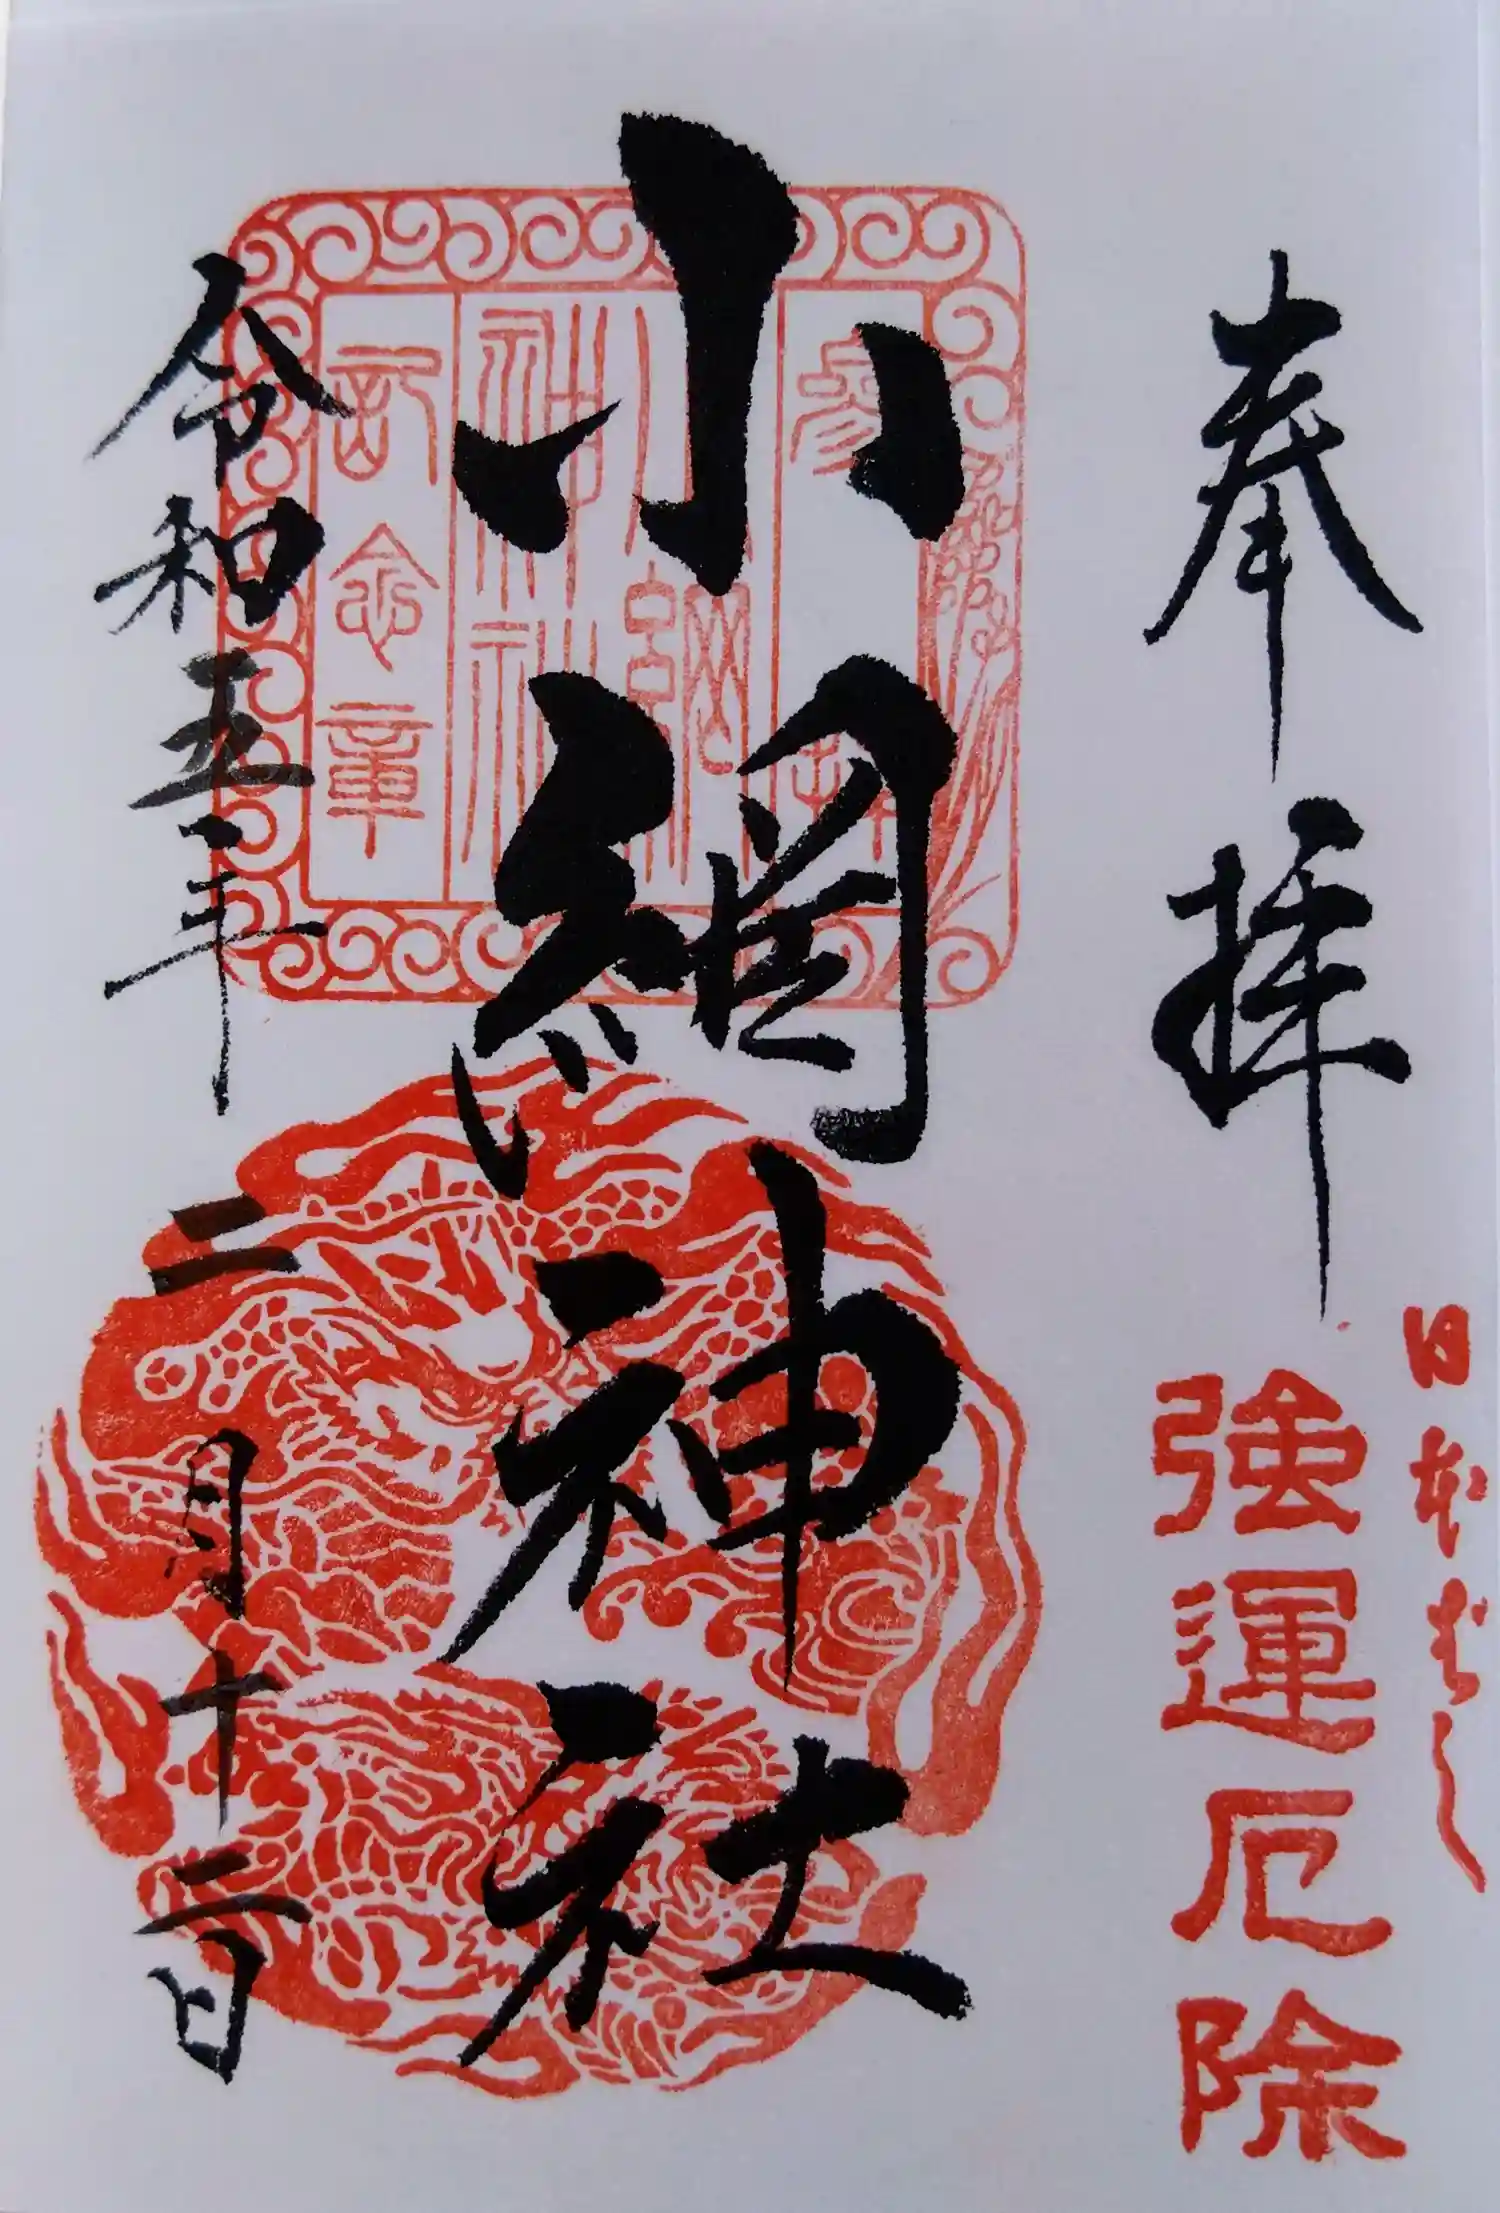 奉拝
日本ばし
強運厄除
小網神社
参拝
小網
神社
記念章
令和五年二月十二日